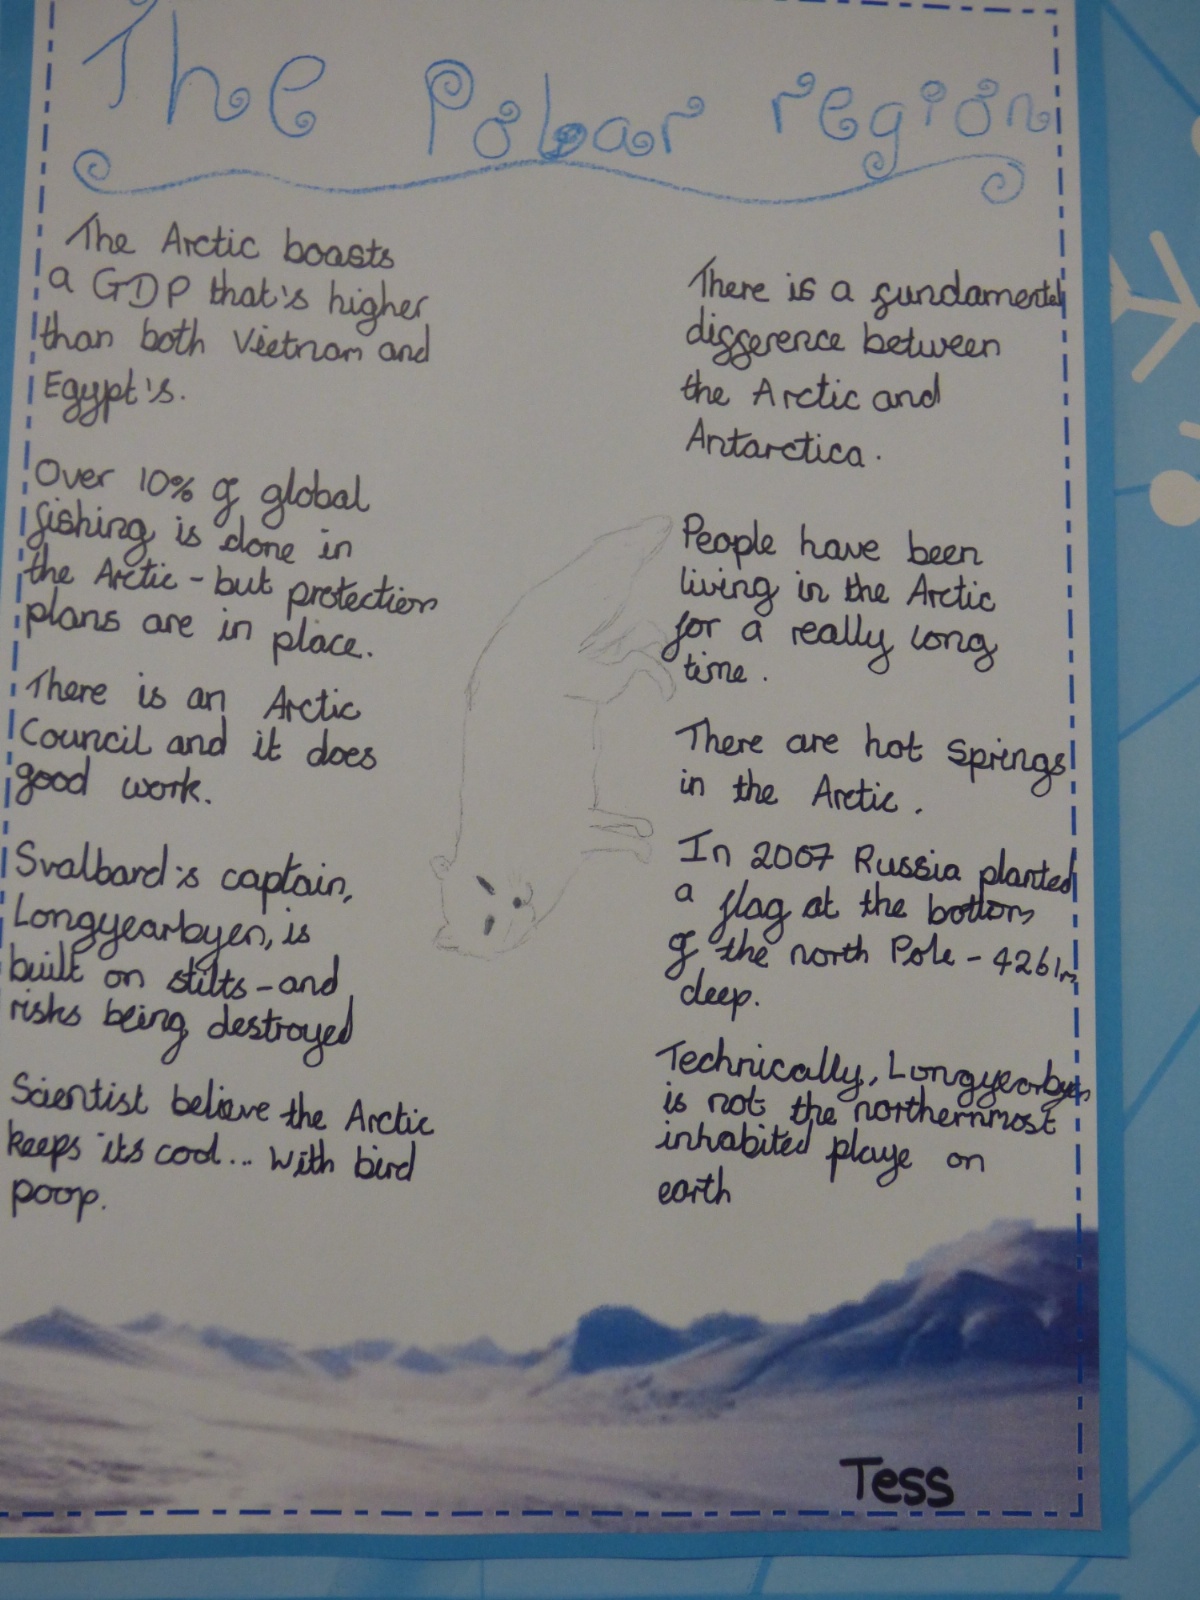 The Polar region
The Arctic boasts
a GDP that's higher
than both Vietnam and
Egypt's.
Over 10% of global
fishing is done in
the Arctic - but protection
plans are in place.
There is an Arctic
Council and it does
good work.
Svalbard's captain,
Longyearbyen, is
built on stilts - and
risks being destroyed
Scientist believe the Arctic
keeps its cool... with bird
poop.
There is a fundamental
difference between
the Arctic and
Antarctica.
People have been
living in the Arctic
for a really long
time.
There are hot springs
in the Arctic.
In 2007 Russia planted
a flag at the bottom
of the north Pole - 4261m
deep.
Technically, Longyearbyen
is not the northernmost
inhabited playe on
earth
Tess